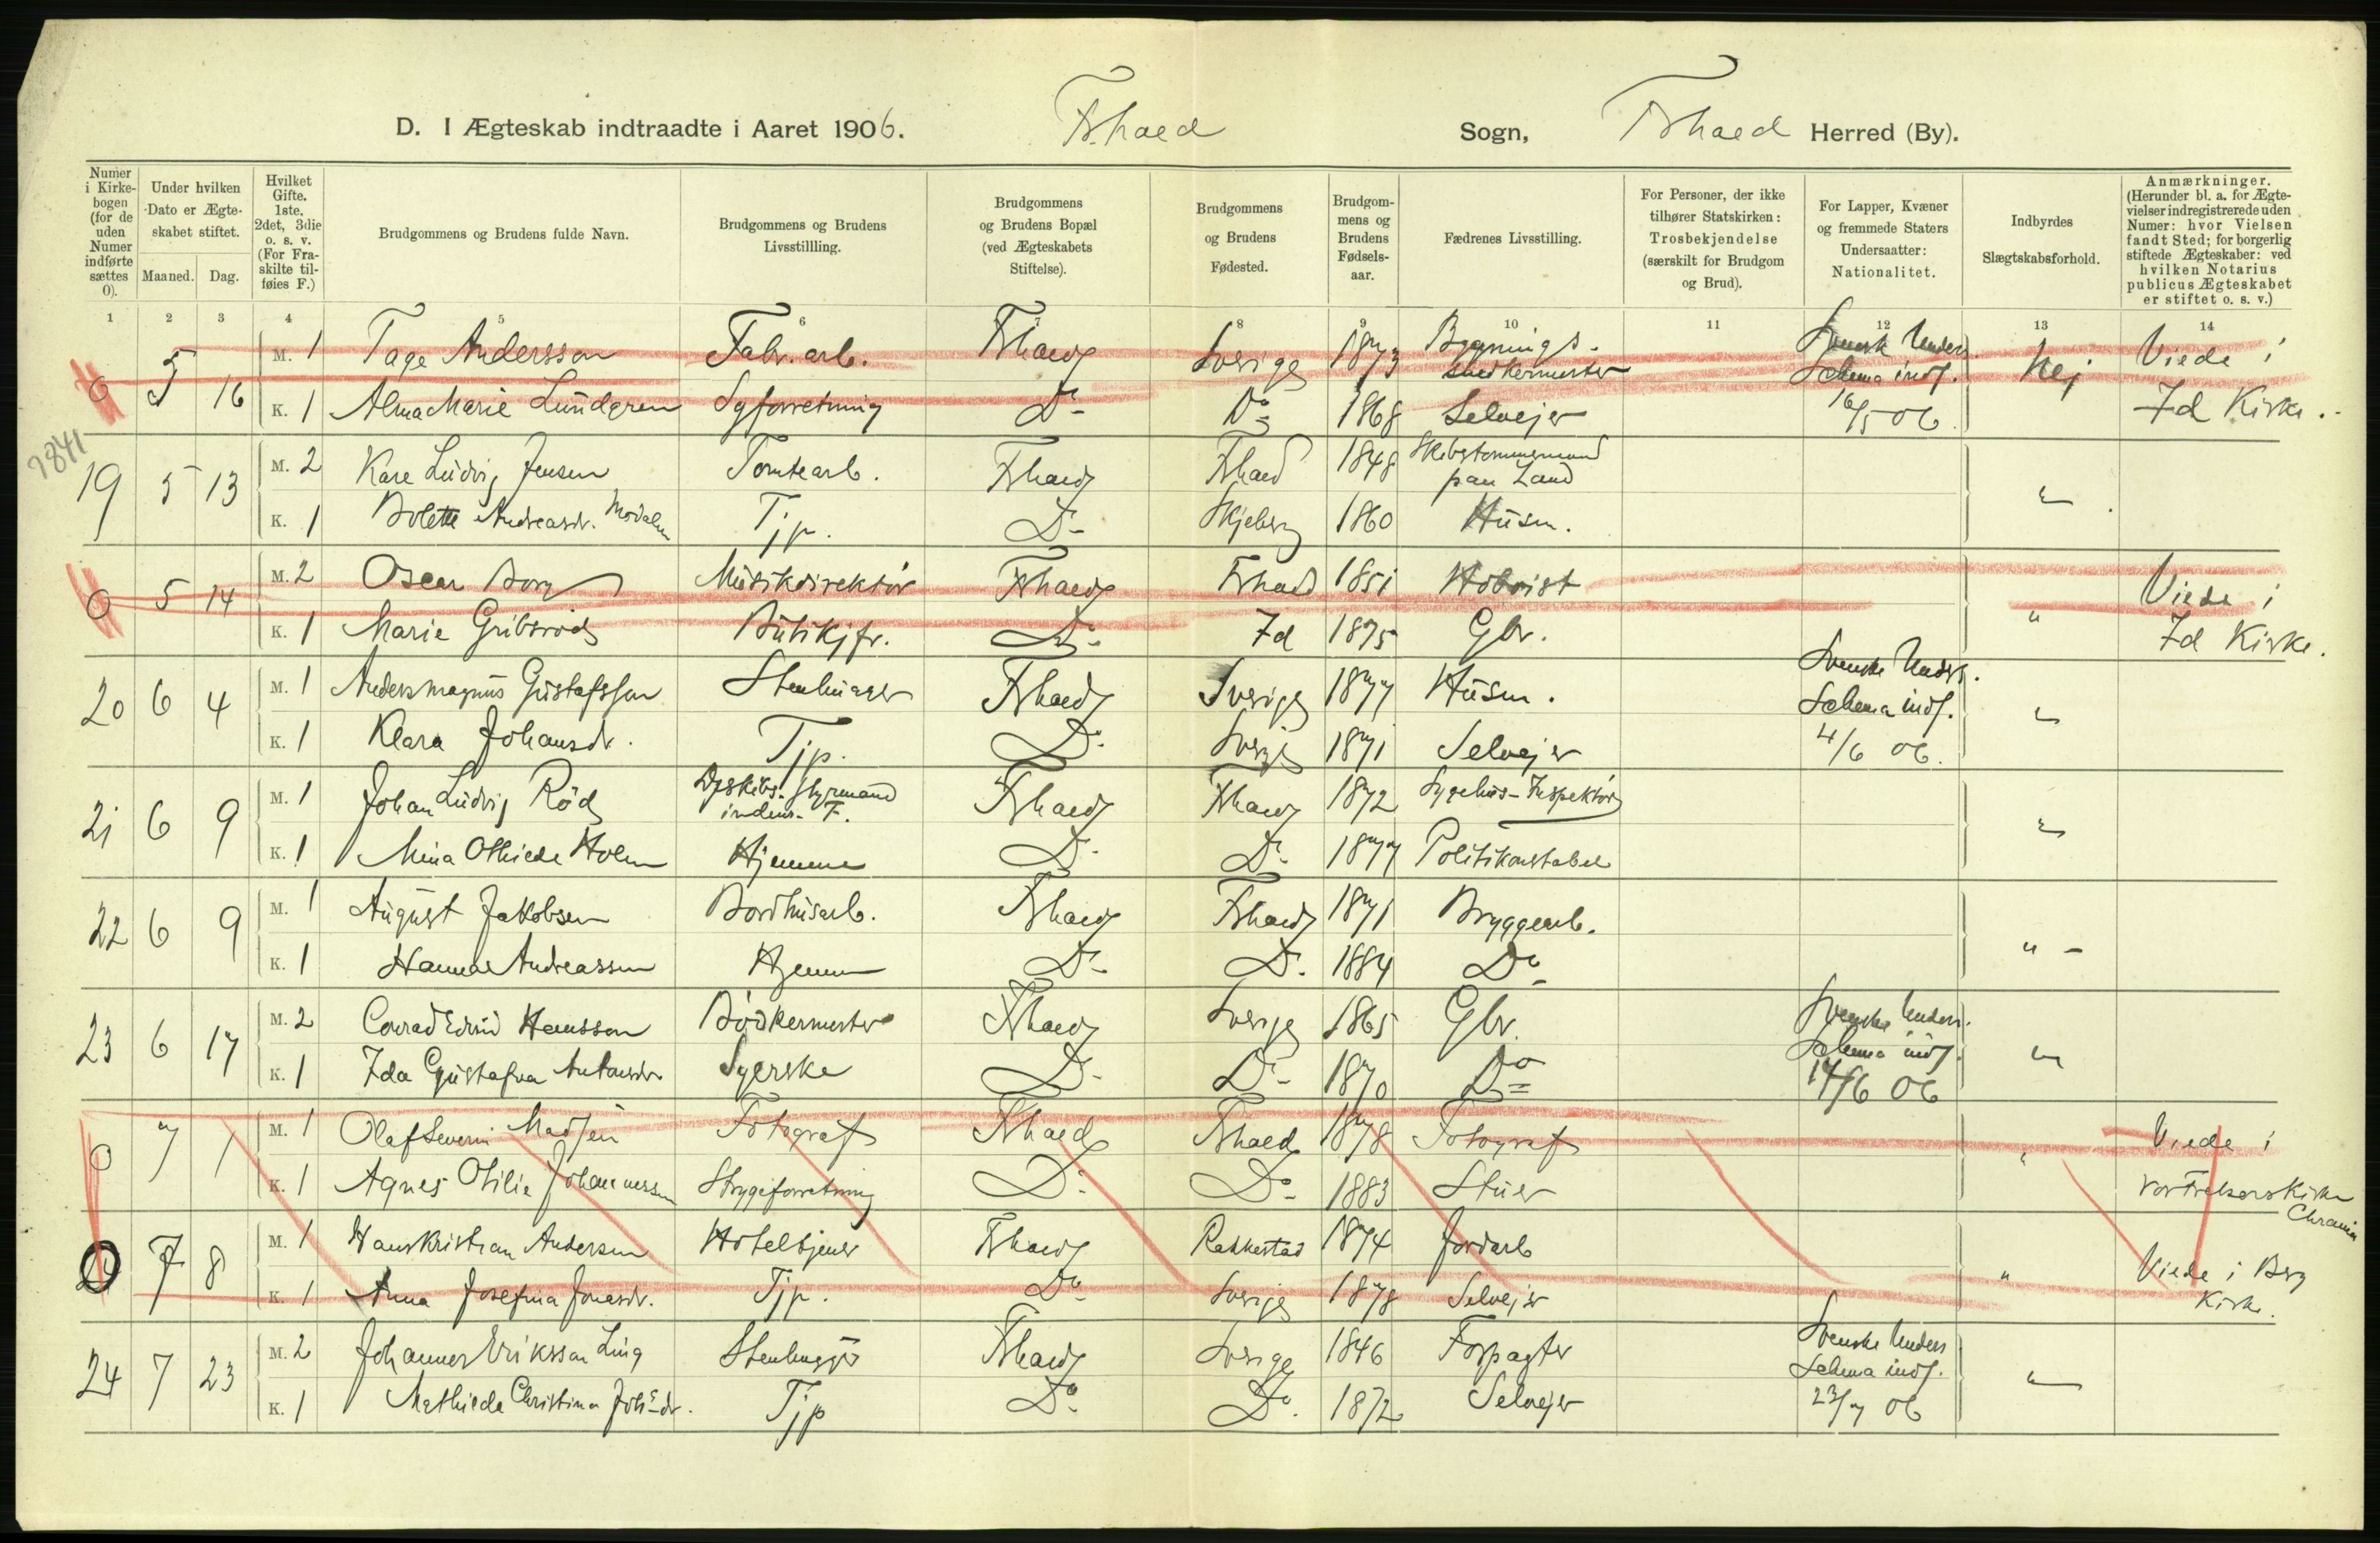 D. I Ægteskab indtraadte i Aaret 1906. Frhald Sogn, Frhald Herred (By).
Numer i Kirkebogen (for de uden Numer indførte sættes 0). Under hvilken Dato er Ægteskabet stiftet. Maaned. Dag. Hvilket Gifte. 1ste, 2det, 3die o. s. v. (For Fraskilte tilføies F.) Brudgommens og Brudens fulde Navn. Brudgommens og Brudens Livsstillling. Brudgommens og Brudens Bopæl (ved Ægteskabets Stiftelse). Brudgommens og Brudens Fødested. Brudgommens og Brudens Fødselsaar. Fædrenes Livsstilling. For Personer, der ikke tilhører Statskirken: Trosbekjendelse (særskilt for Brudgom og Brud). For Lapper, Kvæner og fremmede Staters Undersaatter: Nationalitet. Indbyrdes Slægtskabsforhold. Anmærkninger. (Herunder bl. a. for Ægtevielser indregistrerede uden Numer: hvor Vielsen fandt Sted; for borgerlig stiftede Ægteskaber: ved hvilken Notarius publicus Ægteskabet er stiftet o. s. v.)
1 2 3 4 5 6 7 8 9 10 11 12 13 14
0 5 16 M. 1 Tage Andersson Fabr. arb. Frhald Sverige 1873 Bygningssnedkermester Svensk Unders. Schema indf. Nej Viede i
K. 1 Alma Marie Lundgren Syforretning Do Do 1868 Selvejer 16/5 06 Id Kirke.
19 5 13 M. 2 Karl Ludvig Jensen Tomtearb. Frhald Frhald 1848 Skibstømmermand paa Land "
K. 1 Bolette Andreasdr. Tjp. Do Skjeberg 1860 Husm.
0 5 14 M. 2 Oscar Borg Musikdirektør Frhald Frhald 1851 Hoboist " Viede i
K. 1 Marie Gribsrød Butikjfr. Do Id 1875 Gbr. Id Kirke.
20 6 4 M. 1 Anders Magnus Gustafsson Stenhugger Frhald Sverige 1877 Husm. Svenske Unders. Schema indf. "
K. 1 Klara Johansdr. Tjp. Do Sverige 1871 Selvejer 4/6 06.
21 6 9 M. 1 Johan Ludvig Rød Dpskibs-Styrmand indenr. F. Frhald Frhald 1872 Sygehus-Inspektør "
K. 1 Mina Othilde Holm Hjemme Do Do 1877 Politikonstabel
22 6 9 M. 1 August Jakobsen Bordhusarb. Frhald Frhald 1871 Bryggearb. " -
K. 1 Hanna Andreassen Hjemme Do Do 1884 Do
23 6 17 M. 2 Conrad Edvin Hansson Bødkermester Frhald Sverige 1865 Gbr. Svenske Unders. Schema indf. "
K. 1 Ida Gustafva Antonsdr. Syerske Do Do 1870 Do 17/6 06
0 7 1 M. 1 Olaf Severin Madsen Fotograf Frhald Frhald 1878 Fotograf " Viede i
K. 1 Agnes Otilie Johannessen Strygeforretning Do Do 1883 Stuer Vor Frelsers Kirke Chrania
0 7 8 M. 1 Hans Kristian Andersen Hoteltjener Frhald Rakkestad 1874 Jordarb " Viede i Berg
K. 1 Anna Josefina Jonasdr. Tjp. Do Sverige 1878 Selvejer Kirke.
24 7 23 M. 2 Johannes Eriksson Ling Stenhugger Frhald Sverige 1846 Forpagter Svenske Unders Schema indf. "
K. 1 Mathilda Christina Johsdr. Tjp Do Do 1872 Selvejer 23/7 06